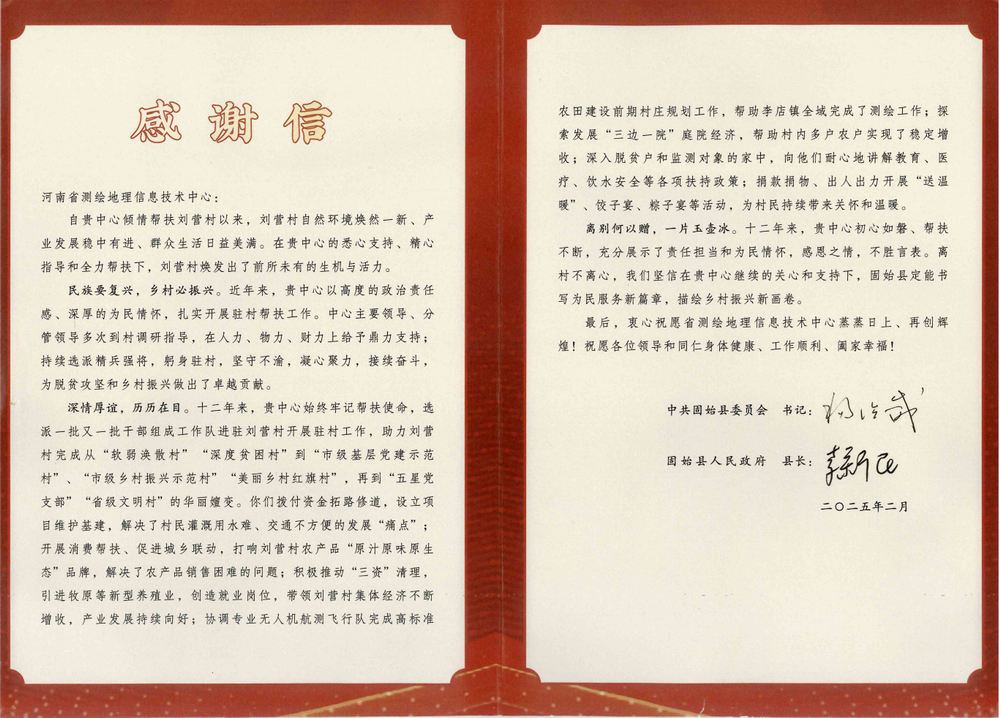 感谢信
河南省测绘地理信息技术中心：
自贵中心倾情帮扶刘营村以来，刘营村自然环境焕然一新、产
业发展稳中有进、群众生活日益美满。在贵中心的悉心支持、精心
指导和全力帮扶下，刘营村焕发出了前所未有的生机与活力。
民族要复兴，乡村必振兴。近年来，贵中心以高度的政治责任
感、深厚的为民情怀，扎实开展驻村帮扶工作。中心主要领导、分
管领导多次到村调研指导，在人力、物力、财力上给予鼎力支持；
持续选派精兵强将，躬身驻村，坚守不渝，凝心聚力，接续奋斗，
为脱贫攻坚和乡村振兴做出了卓越贡献。
深情厚谊，历历在目。十二年来，贵中心始终牢记帮扶使命，选
派一批又一批干部组成工作队进驻刘营村开展驻村工作，助力刘营
村完成从“软弱涣散村”“深度贫困村”到“市级基层党建示范
村”、“市级乡村振兴示范村”“美丽乡村红旗村”，再到“五星党
支部”“省级文明村”的华丽嬗变。你们拨付资金拓路修道，设立项
目维护基建，解决了村民灌溉用水难、交通不方便的发展“痛点”；
开展消费帮扶、促进城乡联动，打响刘营村农产品“原汁原味原生
态”品牌，解决了农产品销售困难的问题；积极推动“三资”清理，
引进牧原等新型养殖业，创造就业岗位，带领刘营村集体经济不断
增收，产业发展持续向好；协调专业无人机航测飞行队完成高标准
农田建设前期村庄规划工作，帮助李店镇全域完成了测绘工作；探
索发展“三边一院”庭院经济，帮助村内多户农户实现了稳定增
收；深入脱贫户和监测对象的家中，向他们耐心地讲解教育、医
疗、饮水安全等各项扶持政策；捐款捐物、出人出力开展“送温
暖”、饺子宴、粽子宴等活动，为村民持续带来关怀和温暖。
离别何以赠，一片玉壶冰。十二年来，贵中心初心如磐、帮扶
不断，充分展示了责任担当和为民情怀，感恩之情，不胜言表。离
村不离心，我们坚信在贵中心继续的关心和支持下，固始县定能书
写为民服务新篇章，描绘乡村振兴新画卷。
最后，衷心祝愿省测绘地理信息技术中心蒸蒸日上、再创辉
煌！祝愿各位领导和同仁身体健康、工作顺利、阖家幸福！
中共固始县委员会 书记：
固始县人民政府 县长：
二〇二五年二月